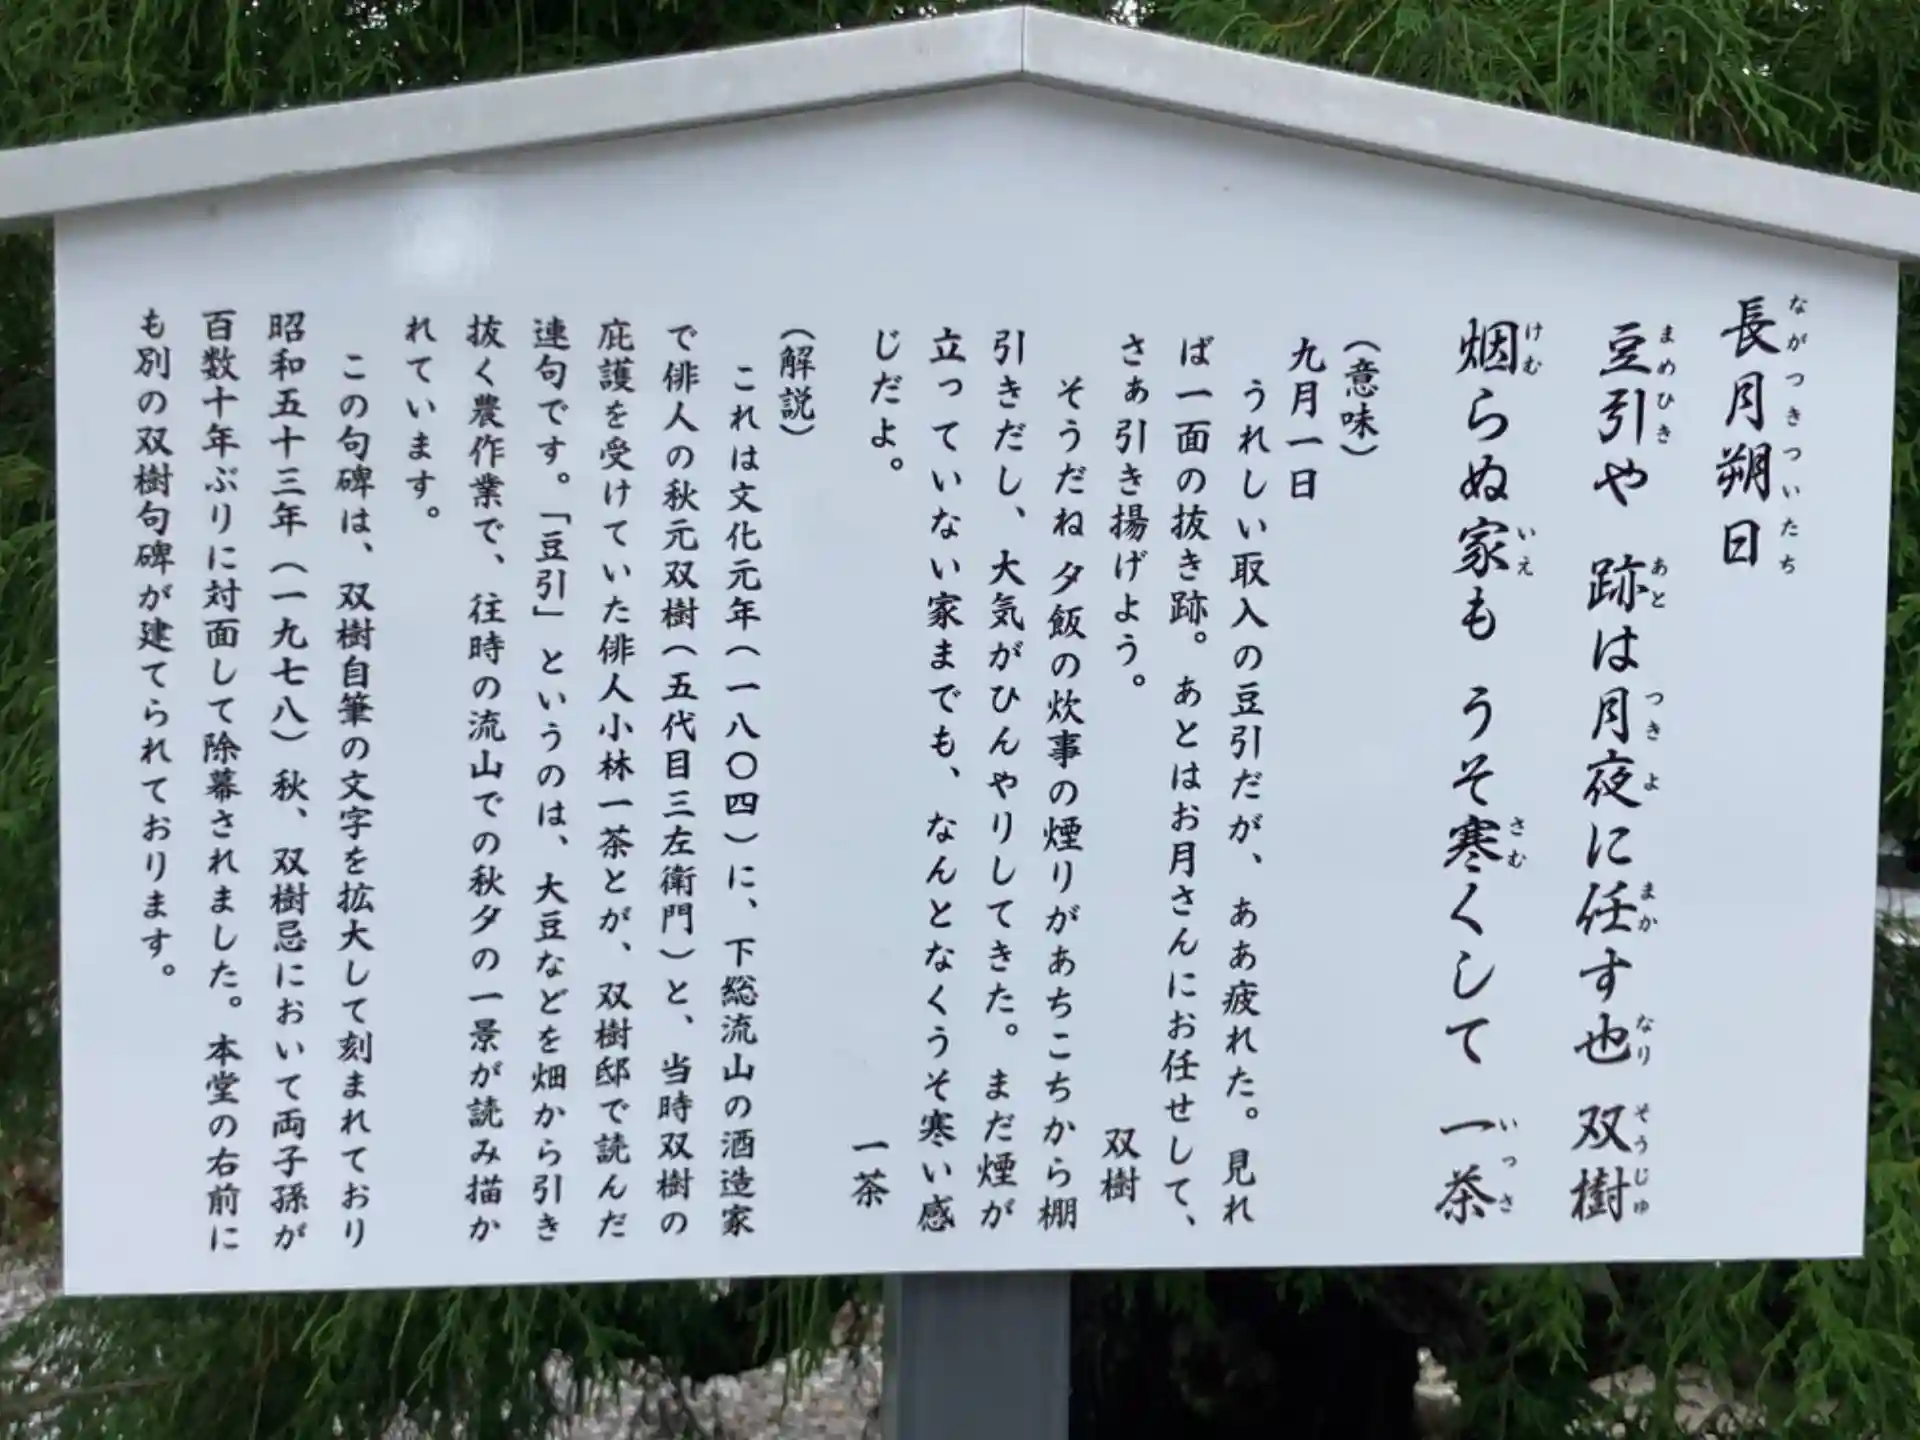 長月朔日
豆引や 跡は月夜に任す也 双樹
烟らぬ家も うそ寒くして 一茶
(意味)
九月一日
うれしい取入の豆引だが、ああ疲れた。見れ
ば一面の抜き跡。あとはお月さんにお任せして、
さぁ引き揚げよう。 双樹
そうだね夕飯の炊事の煙りがあちこちから棚
引きだし、大気がひんやりしてきた。まだ煙が
立っていない家までも、なんとなくうそ寒い感
じだよ。 一茶
(解説)
これは文化元年(一八〇四)に、下総流山の酒造家
で俳人の秋元双樹(五代目三左衛門)と、当時双樹の
庇護を受けていた俳人小林一茶とが、双樹邸で読んだ
連句です。「豆引」というのは、大豆などを畑から引き
抜く農作業で、往時の流山での秋夕の一景が読み描か
れています。
この句碑は、双樹自筆の文字を拡大して刻まれており
昭和五十三年(一九七八)秋、双樹忌において両子孫が
百数十年ぶりに対面して除幕されました。本堂の右前に
も別の双樹句碑が建てられております。